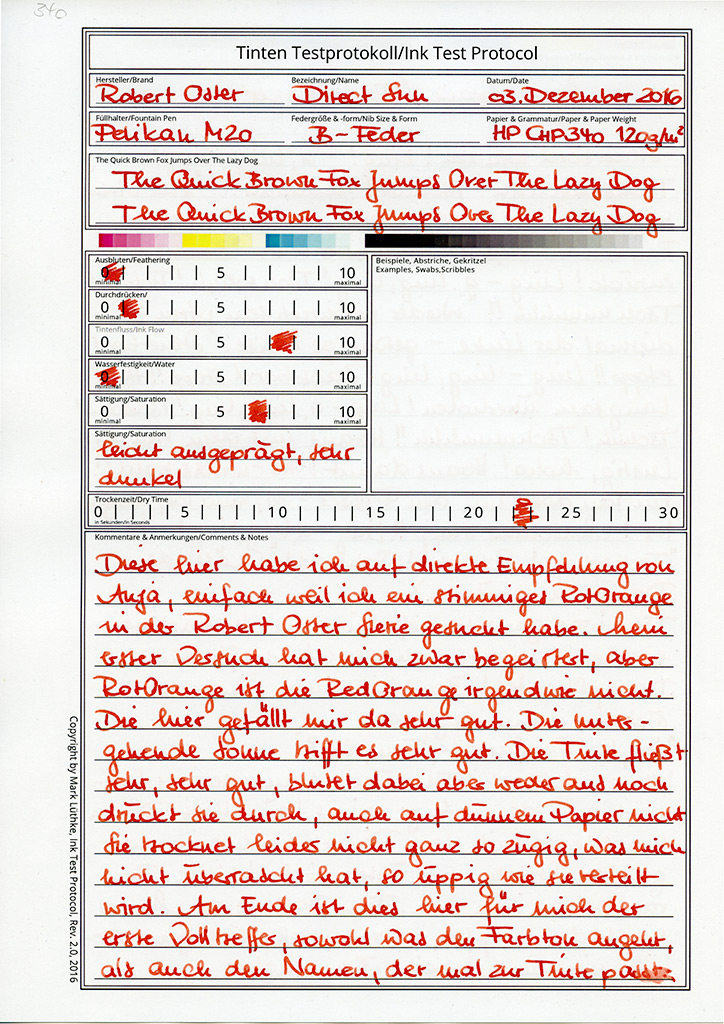 340
Tinten Testprotokoll/Ink Test Protocol
Hersteller/Brand Bezeichnung/Name Datum/Date
Robert Oster Direct Sun 03. Dezember 2016
Füllhalter/Fountain Pen Federgröße & -form/Nib Size & Form Papier & Grammatur/Paper & Paper Weight
Pelikan M20 B-Feder HP CHP340 120g/m²
The Quick Brown Fox Jumps Over The Lazy Dog
The Quick Brown Fox Jumps Over The Lazy Dog
The Quick Brown Fox Jumps Over The Lazy Dog
Ausbluten/Feathering
0 5 10
minimal maximal
Durchdrücken/
0 5 10
minimal maximal
Tintenfluss/Ink Flow
0 5 10
minimal maximal
Wasserfestigkeit/Water
0 5 10
minimal maximal
Sättigung/Saturation
0 5 10
minimal maximal
Sättigung/Saturation
leicht ausgeprägt, sehr
dunkel
Beispiele, Abstriche, Gekritzel
Examples, Swabs,Scribbles
Trockenzeit/Dry Time
0 5 10 15 20 25 30
in Sekunden/in Seconds
Kommentare & Anmerkungen/Comments & Notes
Diese hier habe ich auf direkte Empfehlung von
Anja, einfach weil ich ein stimmiges RotOrange
in der Robert Oster Serie gesucht habe. Mein
erster Versuch hat mich zwar begeistert, aber
RotOrange ist die RedOrange irgendwie nicht.
Die hier gefällt mir da sehr gut. Die unter-
gehende Sonne trifft es sehr gut. Die Tinte fließt
sehr, sehr gut, blutet dabei aber weder aus noch
drückt sie durch, auch auf dünnem Papier nicht
Sie trocknet leider nicht ganz so zügig, was mich
nicht überrascht hat, so üppig wie sie verteilt
wird. Am Ende ist dies hier für mich der
erste Volltreffer, sowohl was den Farbton angeht,
als auch den Namen, der mal zur Tinte passt.
Copyright by Mark Lüthke, Ink Test Protocol, Rev. 2.0, 2016